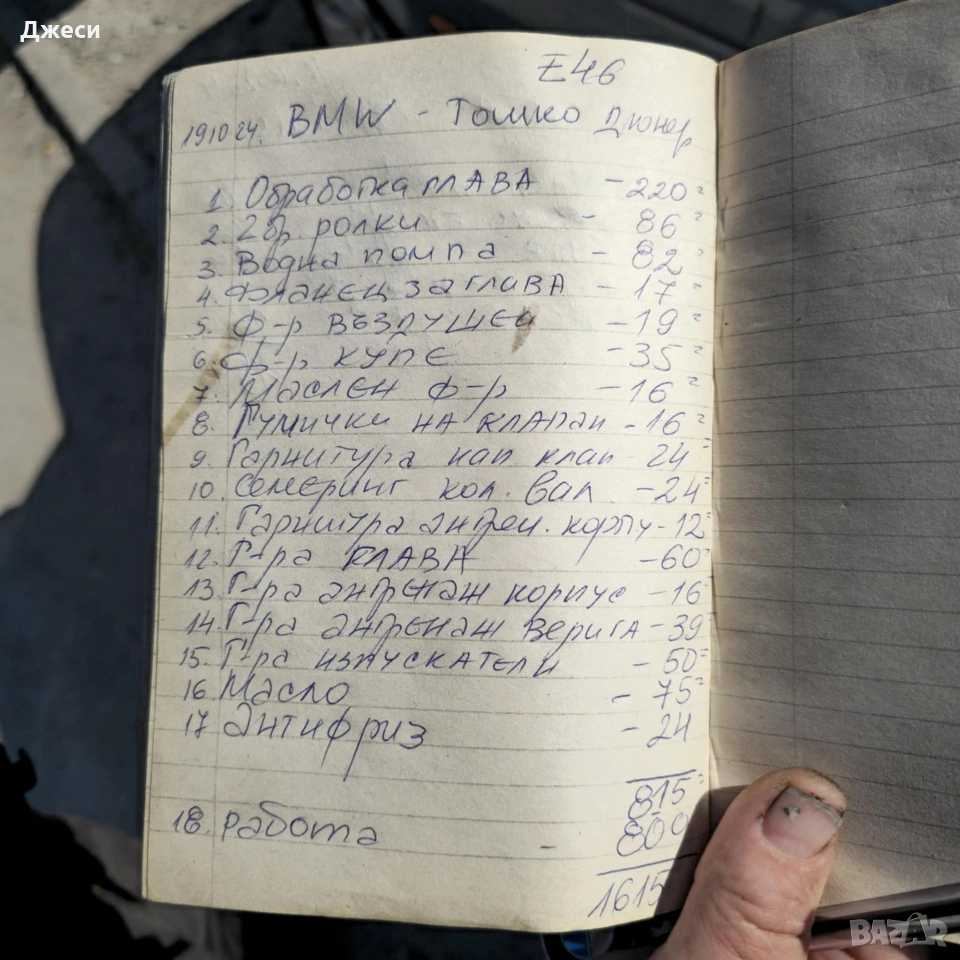 Джеси
E46
191024. BMW - Тошко Дюнер
1. Обработка глава - 220=
2. 2бр. ролки - 86=
3. Водна помпа - 82=
4. Фланец за глава - 17=
5. ф-р въздушен - 19=
6. ф-р купе - 35=
7. Маслен ф-р - 16=
8. Гумички на клапани - 16=
9. Гарнитура кап. клап - 24=
10. Семеринг кол. вал - 24=
11. Гарнитра ангрен. корпу - 12=
12. Г-ра глава - 60=
13. Г-ра ангренаж корпус - 16=
14. Г-ра ангренаж верига - 39=
15. Г-ра изпускатели - 50=
16. Масло - 75=
17 Антифриз - 24
815=
18. работа - 800
1615
BAZAR